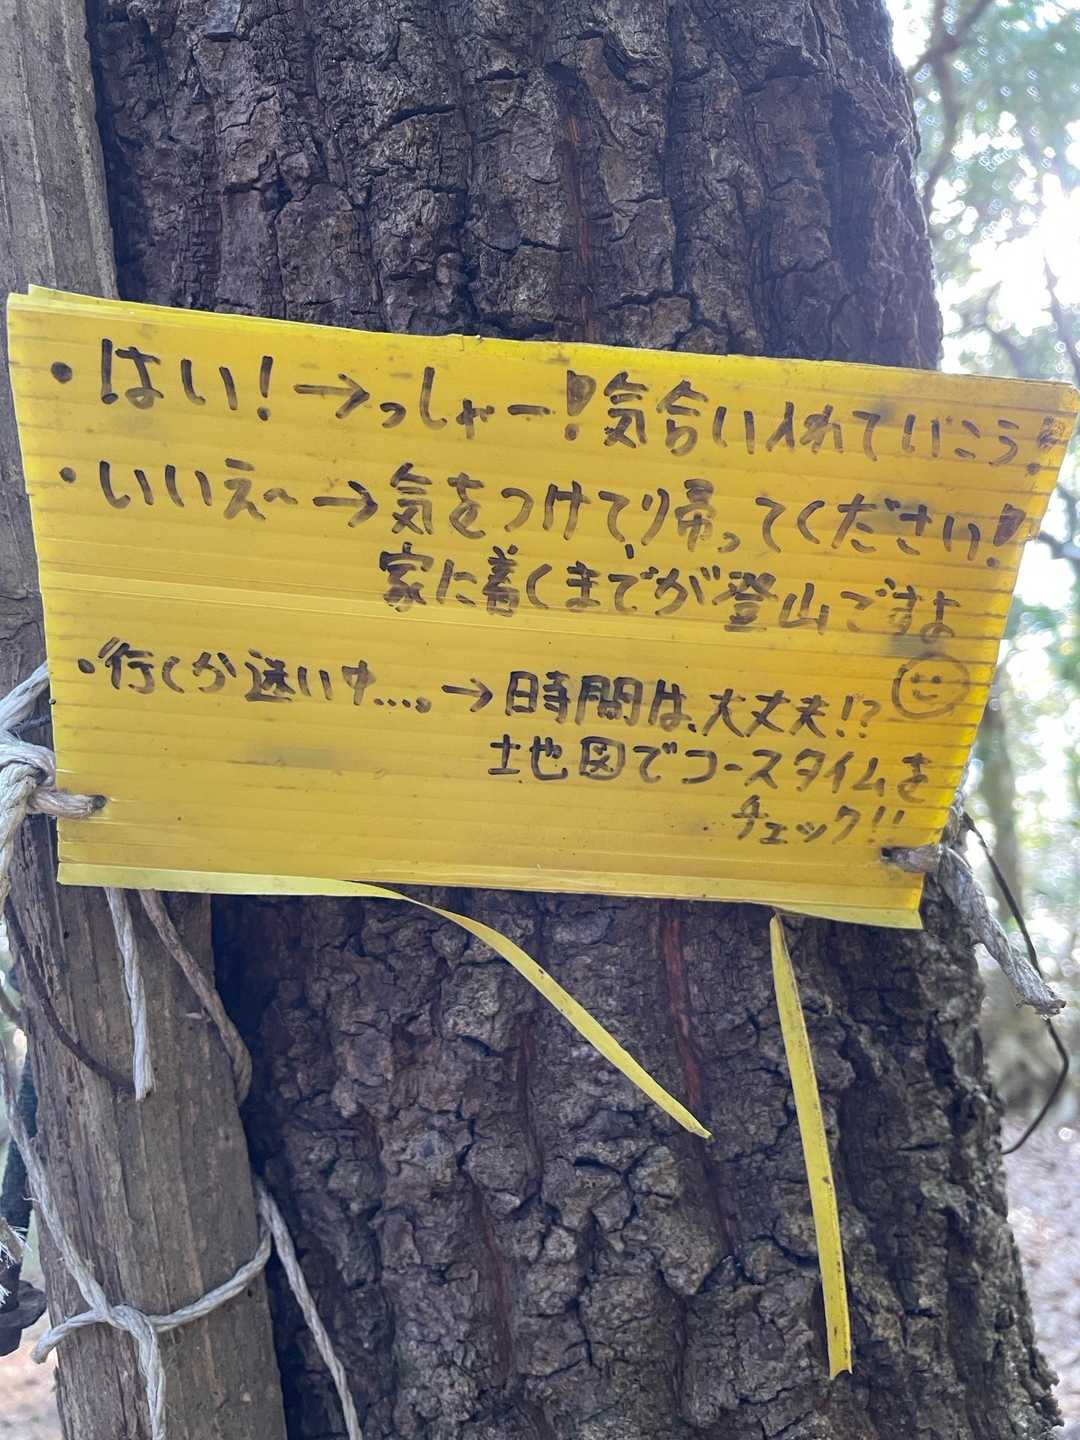 ・はい!→っしゃー!気合い入れていこう!
・いいえ~→気をつけて、帰ってください!
家に着くまでが登山ですよ
・行くか迷い中...。→時間は、大丈夫!?
地図でコースタイムを
チェック!!